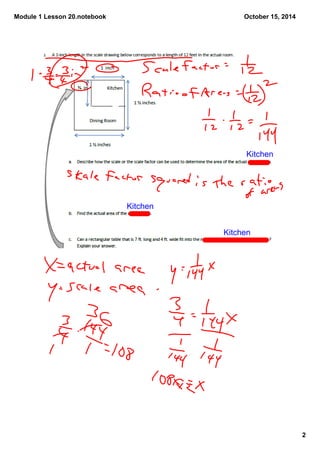 Module 1 Lesson 20.notebook
October 15, 2014
2. A 1-inch length in the scale drawing below corresponds to a length of 12 feet in the actual room.
1 · 3/4 · 3/4 = 3/4
1 inch
¾ in
Kitchen
1 ½ inches
Dining Room
1 ½ inches
Scale Factor = 1/12
Ratio of Areas = (1/12)²
1/12 · 1/12 = 1/144
Kitchen
a. Describe how the scale or the scale factor can be used to determine the area of the actual
Skale Factor squared is the ratio of areas
Kitchen
b. Find the actual area of the
Kitchen
c. Can a rectangular table that is 7 ft. long and 4 ft. wide fit into the
?
Explain your answer.
X = actual area
y = 1/144 x
y = scale area.
3/4 = 1/144 x
1/144 1/144
3/4 · 144/1 = 108
36
108 = x
2